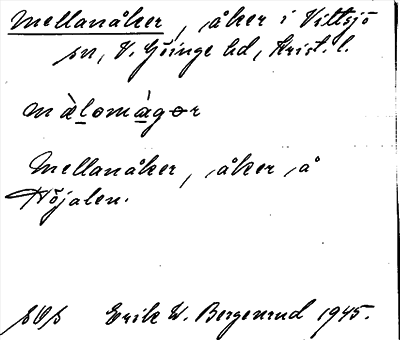 Mellanåker, åker i Vittsjö
sn, V. Göinge hd, Krist. l.
màlomàgər
Mellanåker, åker å
Höjalen.
sOs Erik W. Bergenrud 1945.